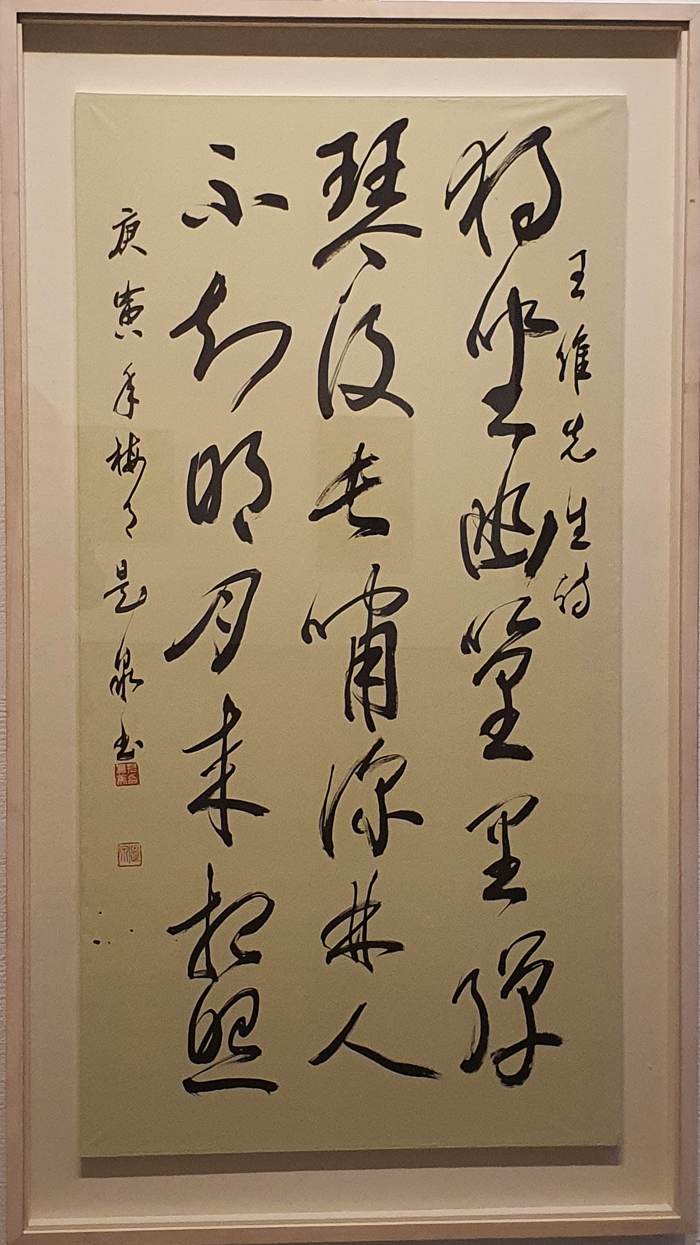 王維先生詩
獨坐幽篁里彈
琴復長嘯深林人
不知明月来相照
庚寅年梅月是泉書